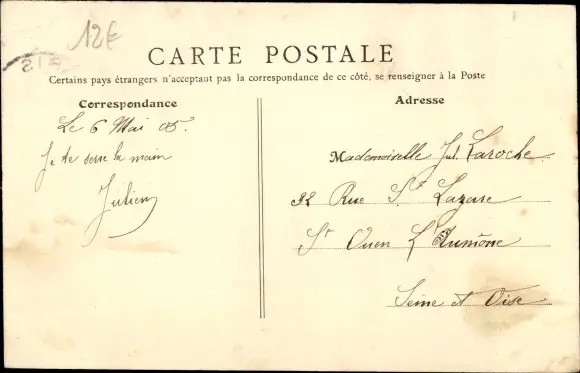 12€
CARTE POSTALE
Certains pays étrangers n'acceptant pas la correspondance de ce côté, se renseigner à la Poste
Correspondance
Adresse
Le 6 Mai 05.
Je te serre la main
Julien
Mademoiselle Jul. Laroche
32 Rue St Lazare
St Ouen L'Aumône
Seine et Oise